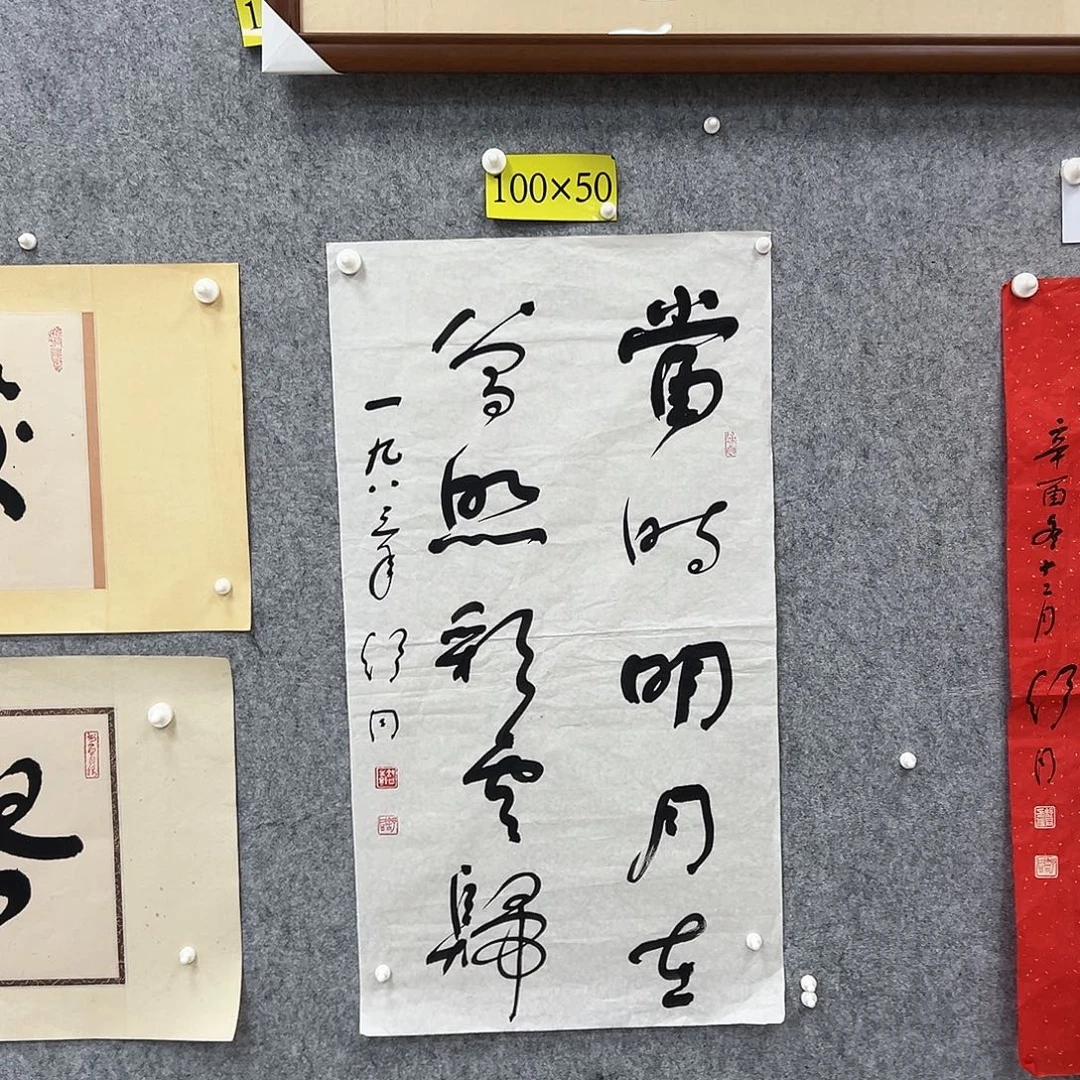 100×50
當時明月在
曾照彩雲歸
一九八三年 舒同
辛酉冬十二月 舒同